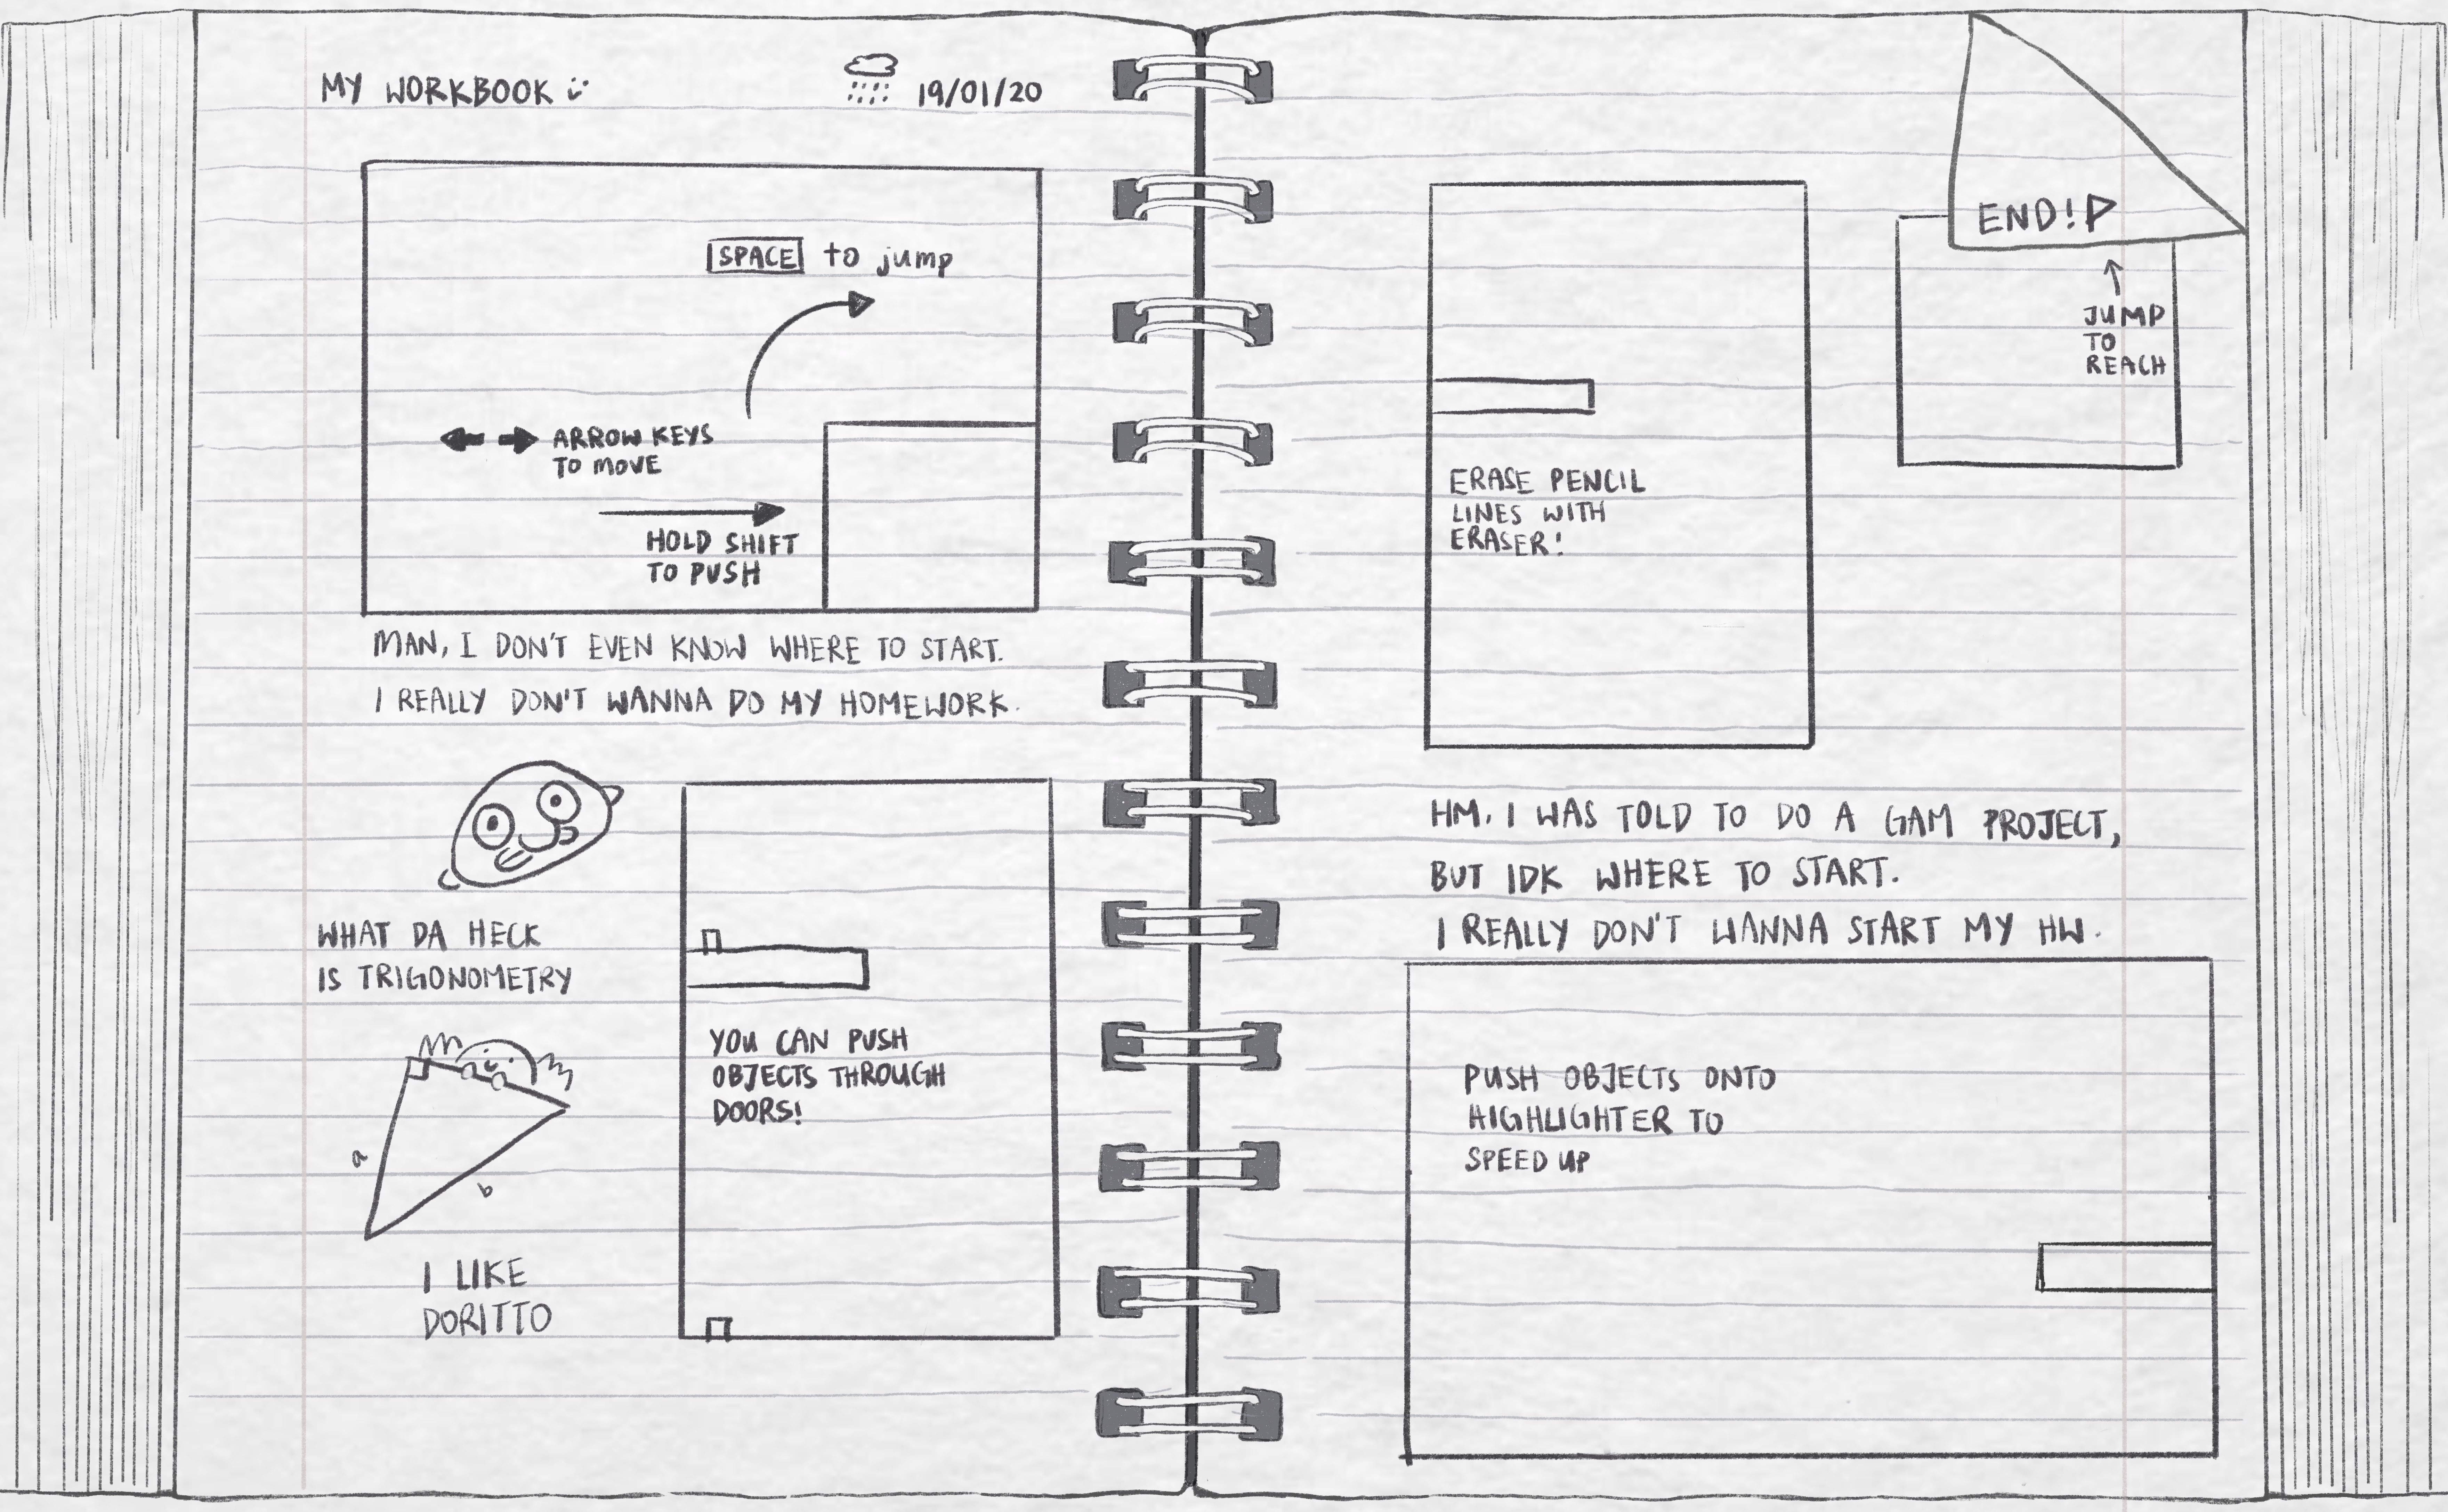 MY WORKBOOK
19/01/20
SPACE to jump
ARROW KEYS
TO MOVE
HOLD SHIFT
TO PUSH
MAN, I DON'T EVEN KNOW WHERE TO START.
I REALLY DON'T WANNA DO MY HOMEWORK.
WHAT DA HECK
IS TRIGONOMETRY
a
b
I LIKE
DORITTO
YOU CAN PUSH
OBJECTS THROUGH
DOORS!
END!
JUMP
TO
REACH
ERASE PENCIL
LINES WITH
ERASER!
HM. I WAS TOLD TO DO A GAM PROJECT,
BUT IDK WHERE TO START.
I REALLY DON'T WANNA START MY HW.
PUSH OBJECTS ONTO
HIGHLIGHTER TO
SPEED UP